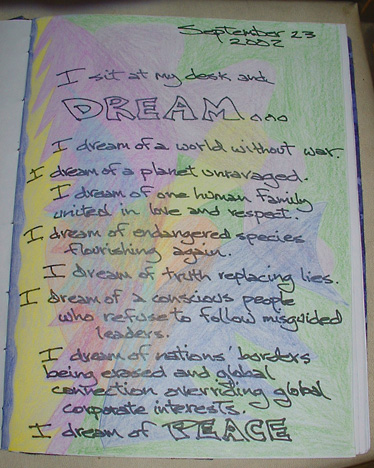 September 23
2002
I sit at my desk and
DREAM...
I dream of a world without war.
I dream of a planet unravaged.
I dream of one human family
united in love and respect.
I dream of endangered species
flourishing again.
I dream of truth replacing lies.
I dream of a conscious people
who refuse to follow misguided
leaders.
I dream of nations' borders
being erased and global
connection overriding global
corporate interests.
I dream of PEACE